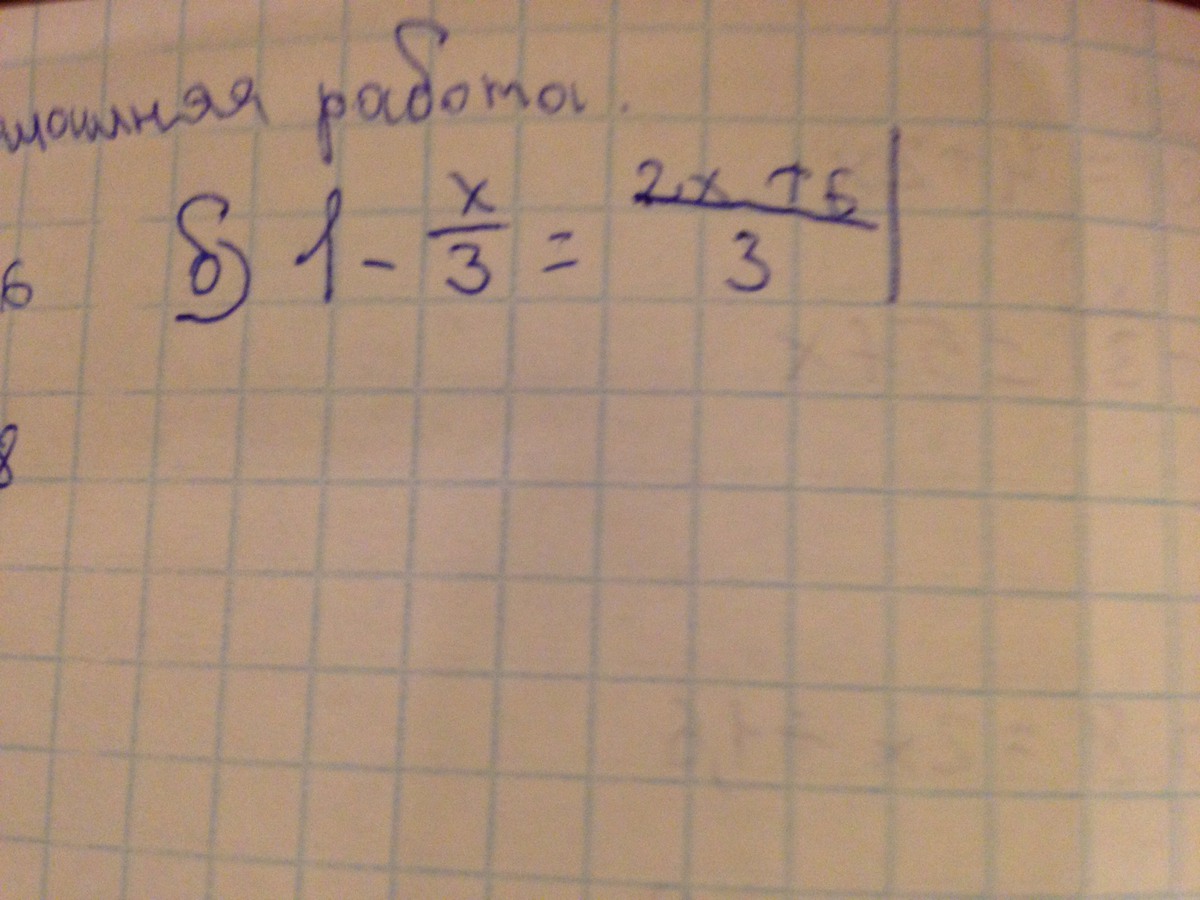 машняя работа.
6 б) 1 - x/3 = (2x + 5)/3 |
8